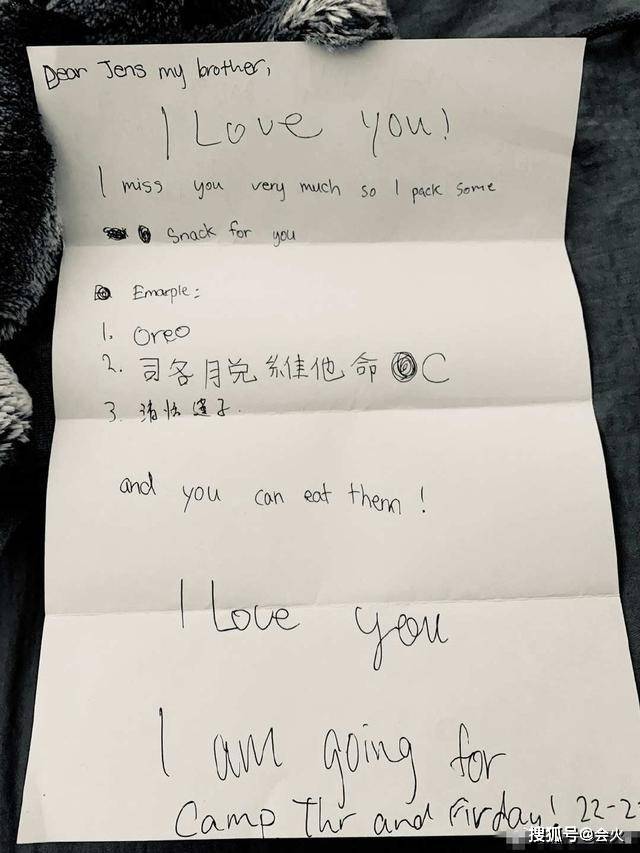 Dear Jens my brother,
I Love you!
I miss you very much so I pack some
Snack for you
Emarple:
1. Oreo
2. 司各脱維他命 C
3. 清怡蓮子.
and you can eat them!
I Love you
I am going for
Camp Thr and Firday! 22-2
搜狐号@会火